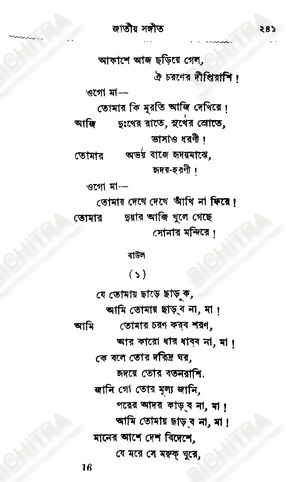 জাতীয় সঙ্গীত ২৪১
আকাশে আজ ছড়িয়ে গেল,
ঐ চরণের দীপ্তিরাশি!
ওগো মা—
তোমার কি মূরতি আজি দেখিরে!
আজি দুঃখের রাতে, সুখের স্রোতে,
ভাসাও ধরণী!
তোমার অভয় বাজে হৃদয়মাঝে,
হৃদয়-হরণী!
ওগো মা—
তোমায় দেখে দেখে আঁখি না ফিরে!
তোমার দুয়ার আজি খুলে গেছে
সোনার মন্দিরে!
বাউল
(১)
যে তোমায় ছাড়ে ছাড়ুক,
আমি তোমায় ছাড়্‌ব না, মা!
আমি তোমার চরণ কর্‌ব শরণ,
আর কারো ধার ধার্‌ব না, মা!
কে বলে তোর দরিদ্র ঘর,
হৃদয়ে তোর রতনরাশি.
জানি গো তোর মূল্য জানি,
পরের আদর কাড়্‌ব না, মা!
আমি তোমায় ছাড়্‌ব না, মা!
মানের আশে দেশ বিদেশে,
যে মরে সে মরুক্ ঘুরে,
16
BICHITRA